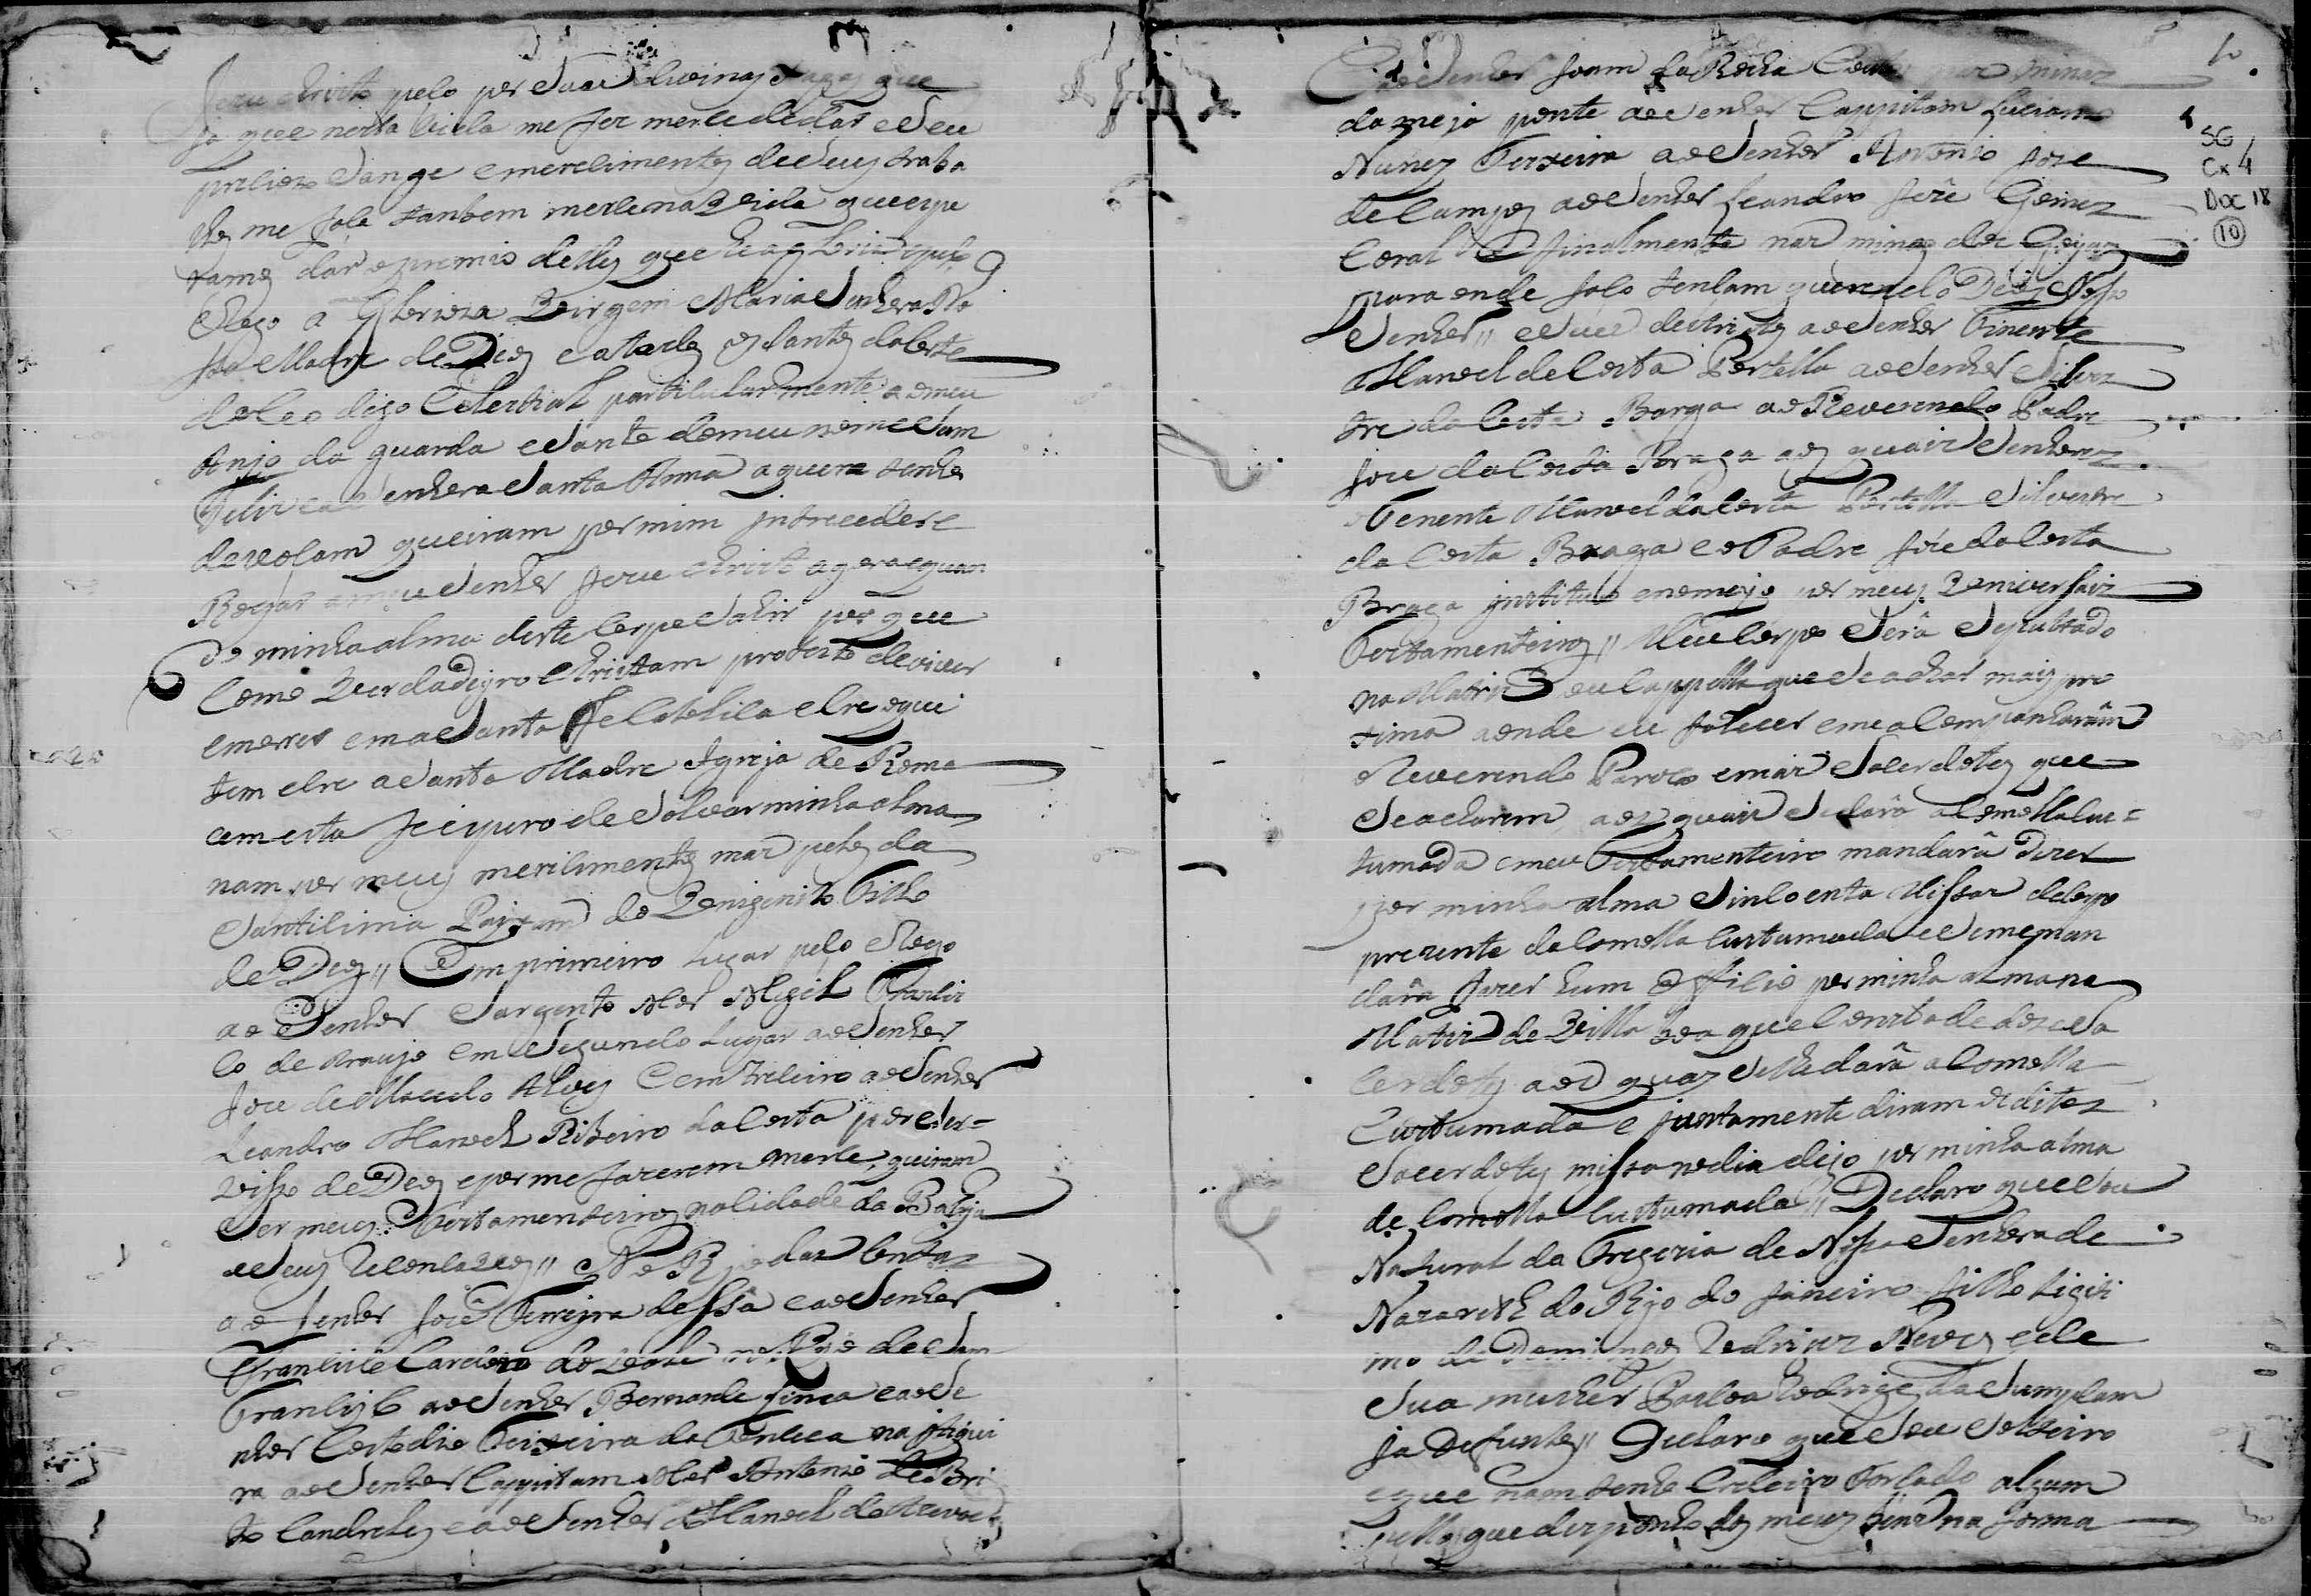 Jezu christo pelo por suas divinas chagas que
ja que nesta vida me fes merce de dar o seu
preciozo sange e merecimentos de seus traba
lhos me fasa tanbem merce na vida que espe
ramos dar o premio delles que he a gloria e peso
Rogo a Glorioza Virgem Maria Senhora No
sa Madre de Deos e a todos os santos da Corte
do Ceo digo Celestial particularmente ao meu
Anjo da guarda e santo do meu nome Sam
Felis e a Senhora Santa Anna a quem tenho
devosam queiram por mim intreceder e
Rogar a meu Senhor Jezu christo agora e quan
do minha alma deste Corpo sahir por que
Como Verdadeyro Christam protesto de viver
e morrer em a Santa Fe Catolica e Cre o que
tem e cre a Santa Madre Igreja de Roma
e em esta fe espero de salvar minha alma
nam por meus merecimentos mas pelos da
Santicima Payxam do Vonigenito Filho
de Deos // Em primeiro lugar peso e Rogo
ao Senhor Sargento Mor Migel Francis
co de Araujo em segundo lugar ao Senhor
Joze de Macedo Alves e em treceiro ao Senhor
Leandro Manoel Ribeiro da Costa por ser=
visso de Deos e por me fazerem merce, queiram
ser meus Testamenteiros na cidade da Bahya
e seus Reconcavos // No Rjo das Contas
ao Senhor José Ferreyra de Sá e ao Senhor
Francisco Cardozo do no Rjo de Sam
Francisco ao Senhor Bernardo e ao Se
nhor Costodio Teixeira da Fonseca na Itiqui
ra ao Senhor Cappitam Mor Antonio de Bri
to e ao Senhor Manoel de
ao Senhor Joam da Rocha nas minas
da meja ponte ao Senhor Cappitam Luciano
Nunes Teixeira ao Senhor Antonio Joze
de Campos ao Senhor Leandro Joze Gomes
Coral E finalmente nas minas dos Goyaz
para onde faso tensam querendo Deos Noso
Senhor // e seus destritos ao Senhor Tinente
Manoel da Costa Portella ao Senhor Silves
tre da Costa Barga ao Reverendo Padre
Joze da Costa Braga aos quais Senhores
o Tenente Manoel da Costa Portella Silvestre
da Costa Braga e o Padre Joze da Costa
Braga instituo e nomejo por meus Voniversais
Testamenteiros // Meu Corpo será sepultado
na Matris ou Cappella que se achar mais pro
xima aonde eu falecer e me acompanharám
o Reverendo Paroco e mais Sacerdotes que
se acharem, aos quais se dará a Esmolla cus=
tumada e meu Testamenteiro mandará dizer
por minha alma sincoenta Missas de Corpo
prezente da esmolla Custumada e se me man
dará fazer hum Officio por minha alma na
Matris de Villa boa que Consta de doze Sa
cerdotes aos quaz se lhe dará a esmolla
Custumada e juntamente diram os ditos
Sacerdotes missa no dia digo por minha alma
de Esmolla Custumada // Declaro que sou
Natural da Fregezia de Nossa Senhora de
Nazareth do Rjo de Janeiro filho ligiti
mo de Domingos Rodrigues Neves e de
sua mulher Rodrigues da Sumpsam
ja defuntos // Declaro que sou solteiro
e que nam tenho Erdeiro Forsado algum
pello que disponho dos meus bens na forma
10
SG
Cx 4
Doc 18
10